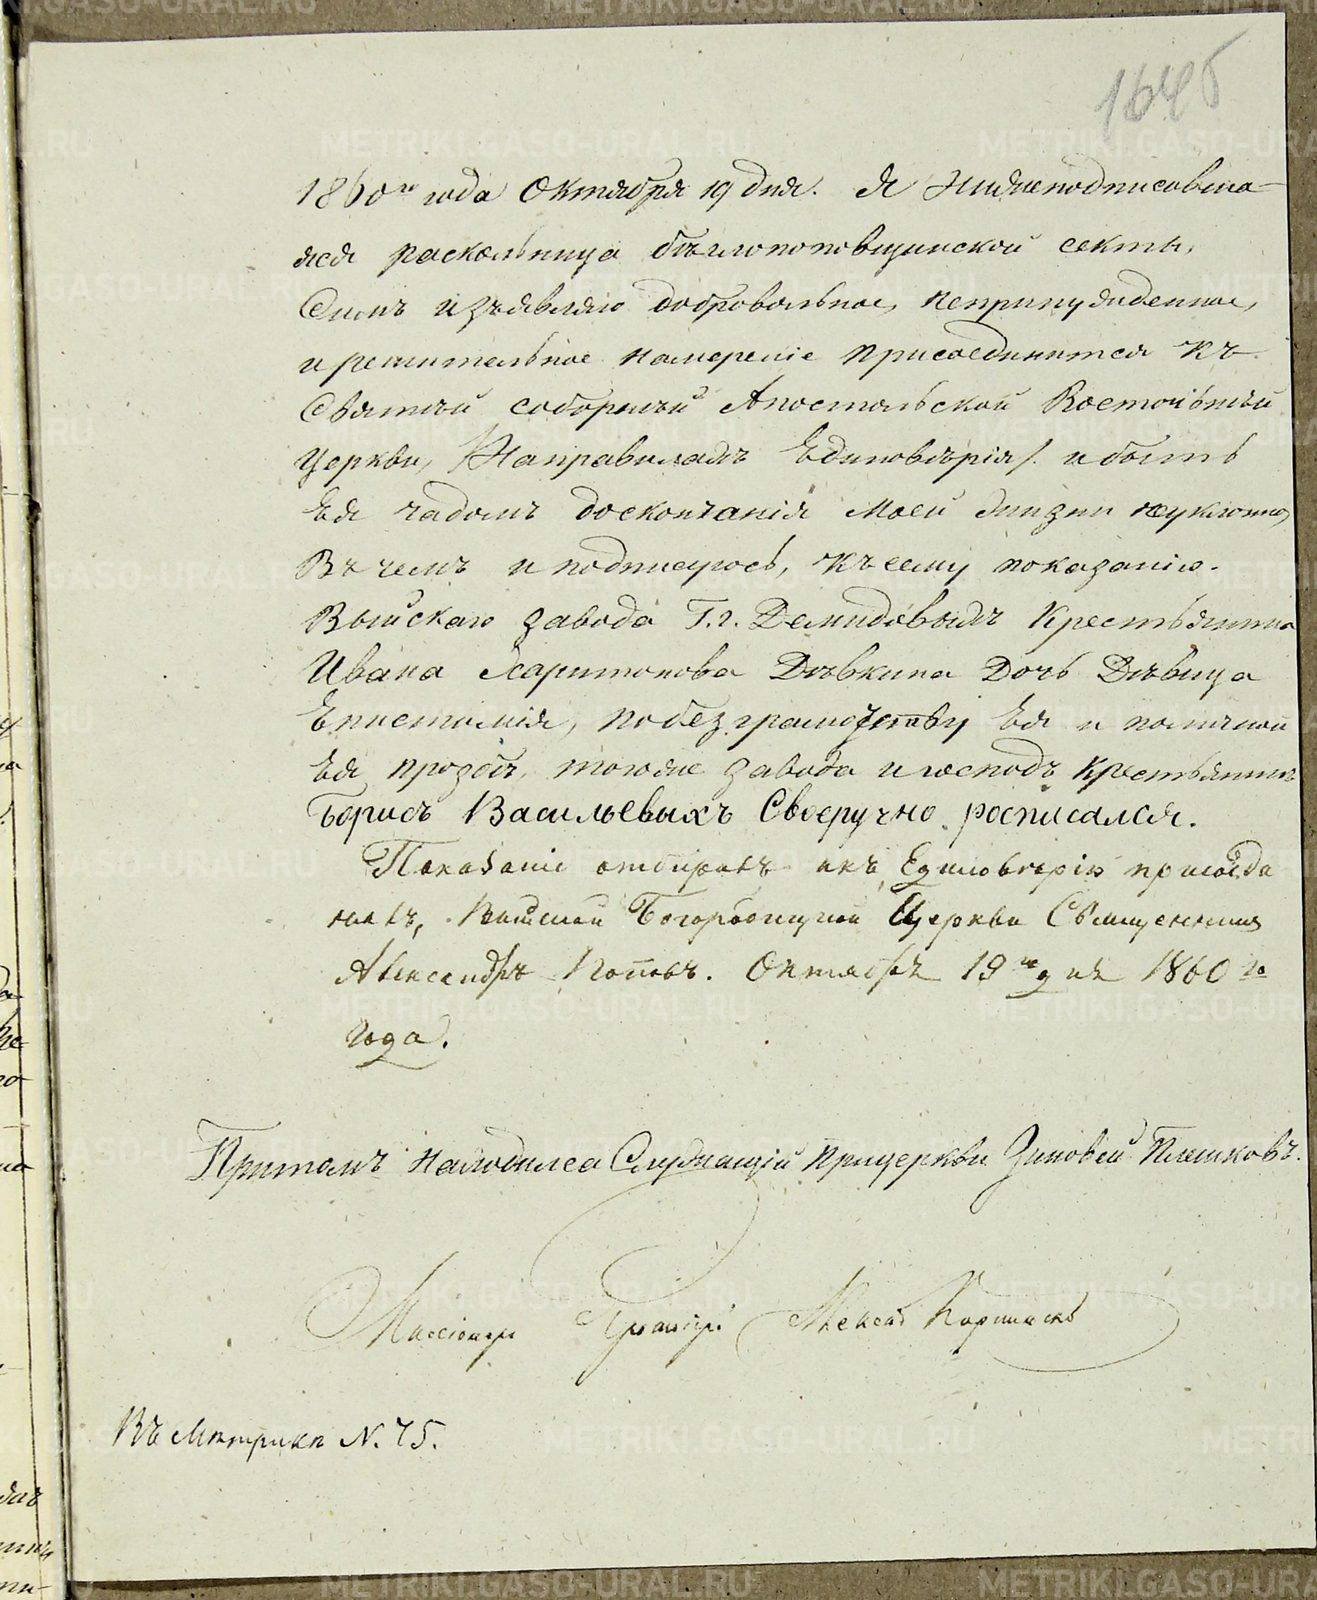 164б
1860го года Октября 19 дня. Я Нижеподписовша-
яся раскольница беглопоповщинской секты,
Симъ изъявляю добровольное, непринужденное,
и решительное намереніе присоединится къ
Святой соборной Апостольской Восточьной
Церкви, /Направилахъ Единоверія/. и быть
Ея чадомъ доскончанія моей жизни неуклонно
Въ чемъ и подписуюсь, къ сему показанію.
Выйскаго завода Г.г. Демидовыхъ Крестьянина
Ивана Харитонова Девкина Дочь Девица
Епистимія, побезграмотству Ея и поличной
Ея прозбе, тогоже завода и господъ Крестьянинъ
Борисъ Васильевыхъ Своеручно росписался.
Показаніе отбиралъ и къ Единоверію присоеди
нилъ, Богородицкой Церкви Священникъ
Александръ Поповъ. Октября 19го дня 1860го
года.
Притомъ находился Служащій прицеркви Зиновей Плешковъ.
Миссіонеръ
Въ Метрике N. 75.
METRIKI.GASO-URAL.RU